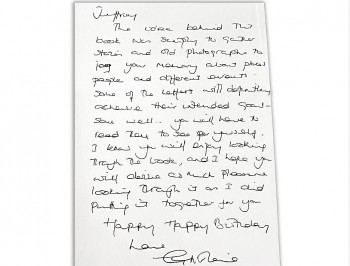 Jeffrey
The idea behind this
book was simply to gather
stories and old photographs to
jog your memory about places
people and different events.
Some of the letters will definitely
achieve their intended goal -
some well.. you will have to
read them to see for yourself.
I know you will enjoy looking
through the book, and I hope you
will derive as much pleasure
looking through it as I did
putting it together for you
Happy Happy Birthday
Love